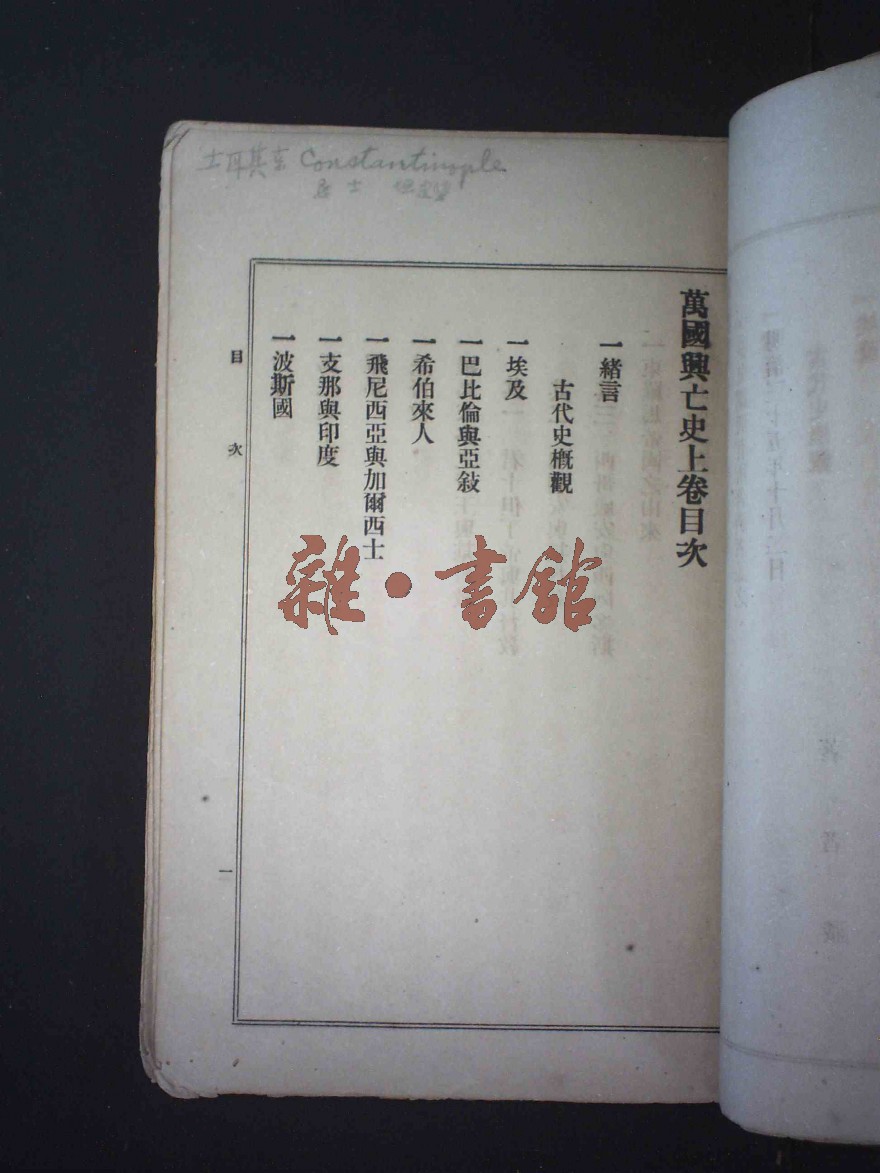 土耳其京 Constantinople
萬國興亡史上卷目次
一緒言
古代史概觀
一埃及
一巴比倫與亞敍
一希伯來人
一飛尼西亞與加爾西士
一支那與印度
一波斯國
目次
一
雜·書館